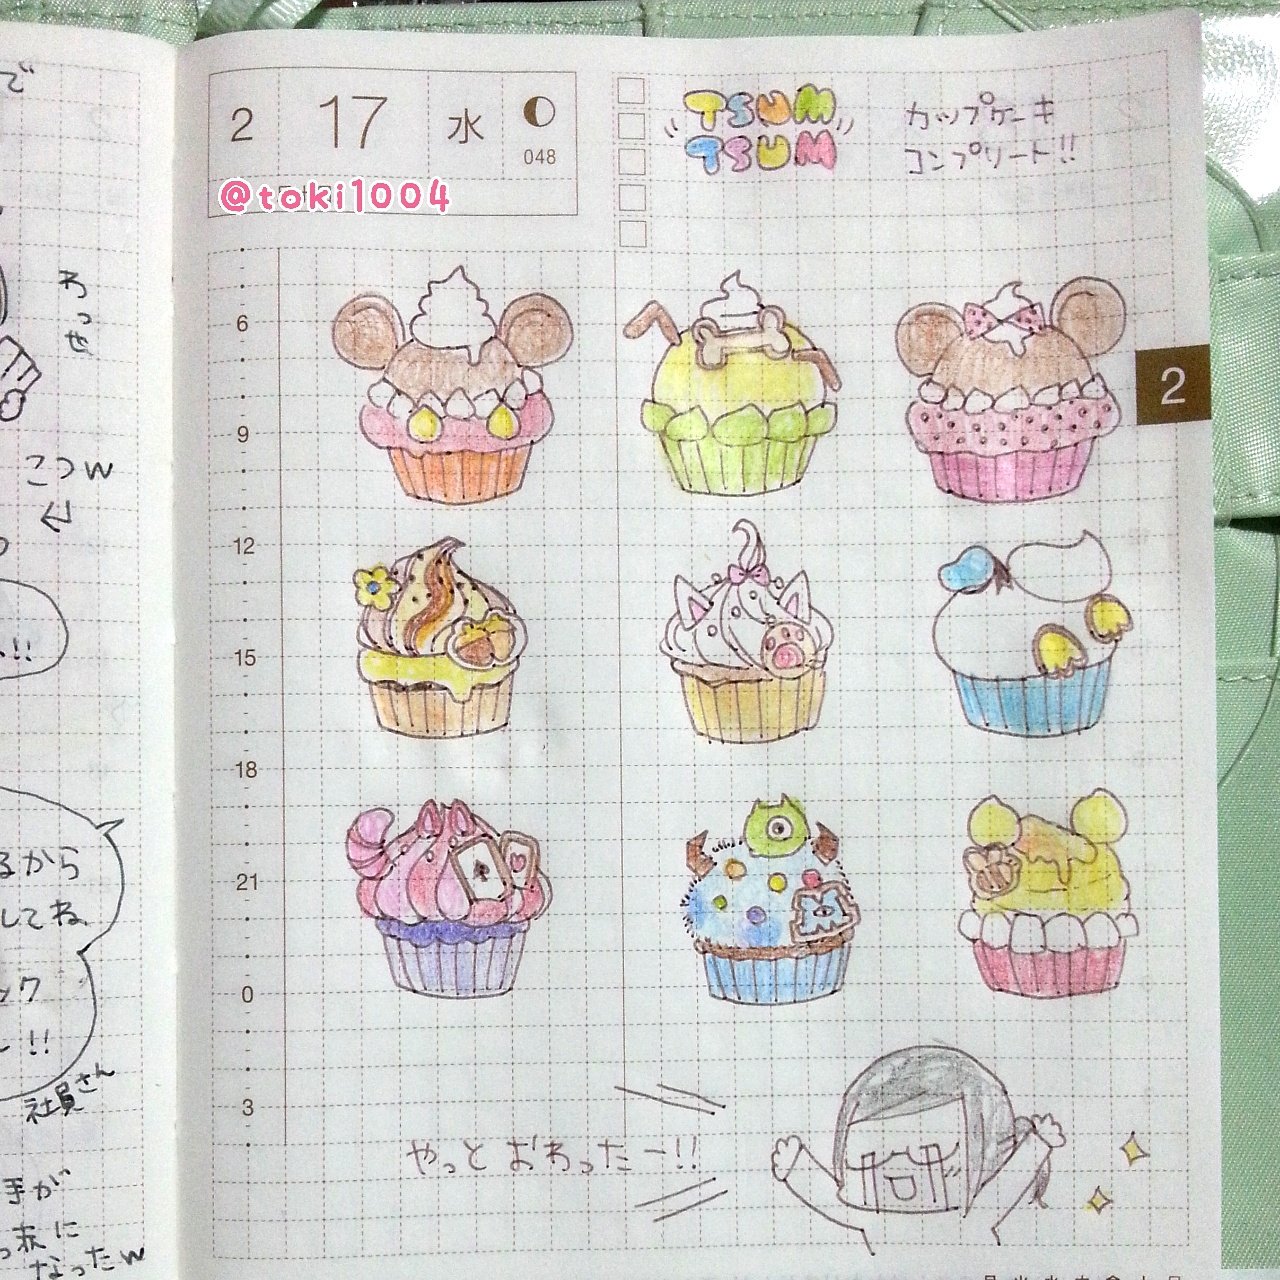 で
わっせ
こつw
!!
るから
してね
ック
!!
社員さん
手が
になったw
2 17 水
048
@toki1004
TSUM
TSUM
カップケーキ
コンプリート!!
6
9
12
15
18
21
0
3
2
やっと おわったー!!